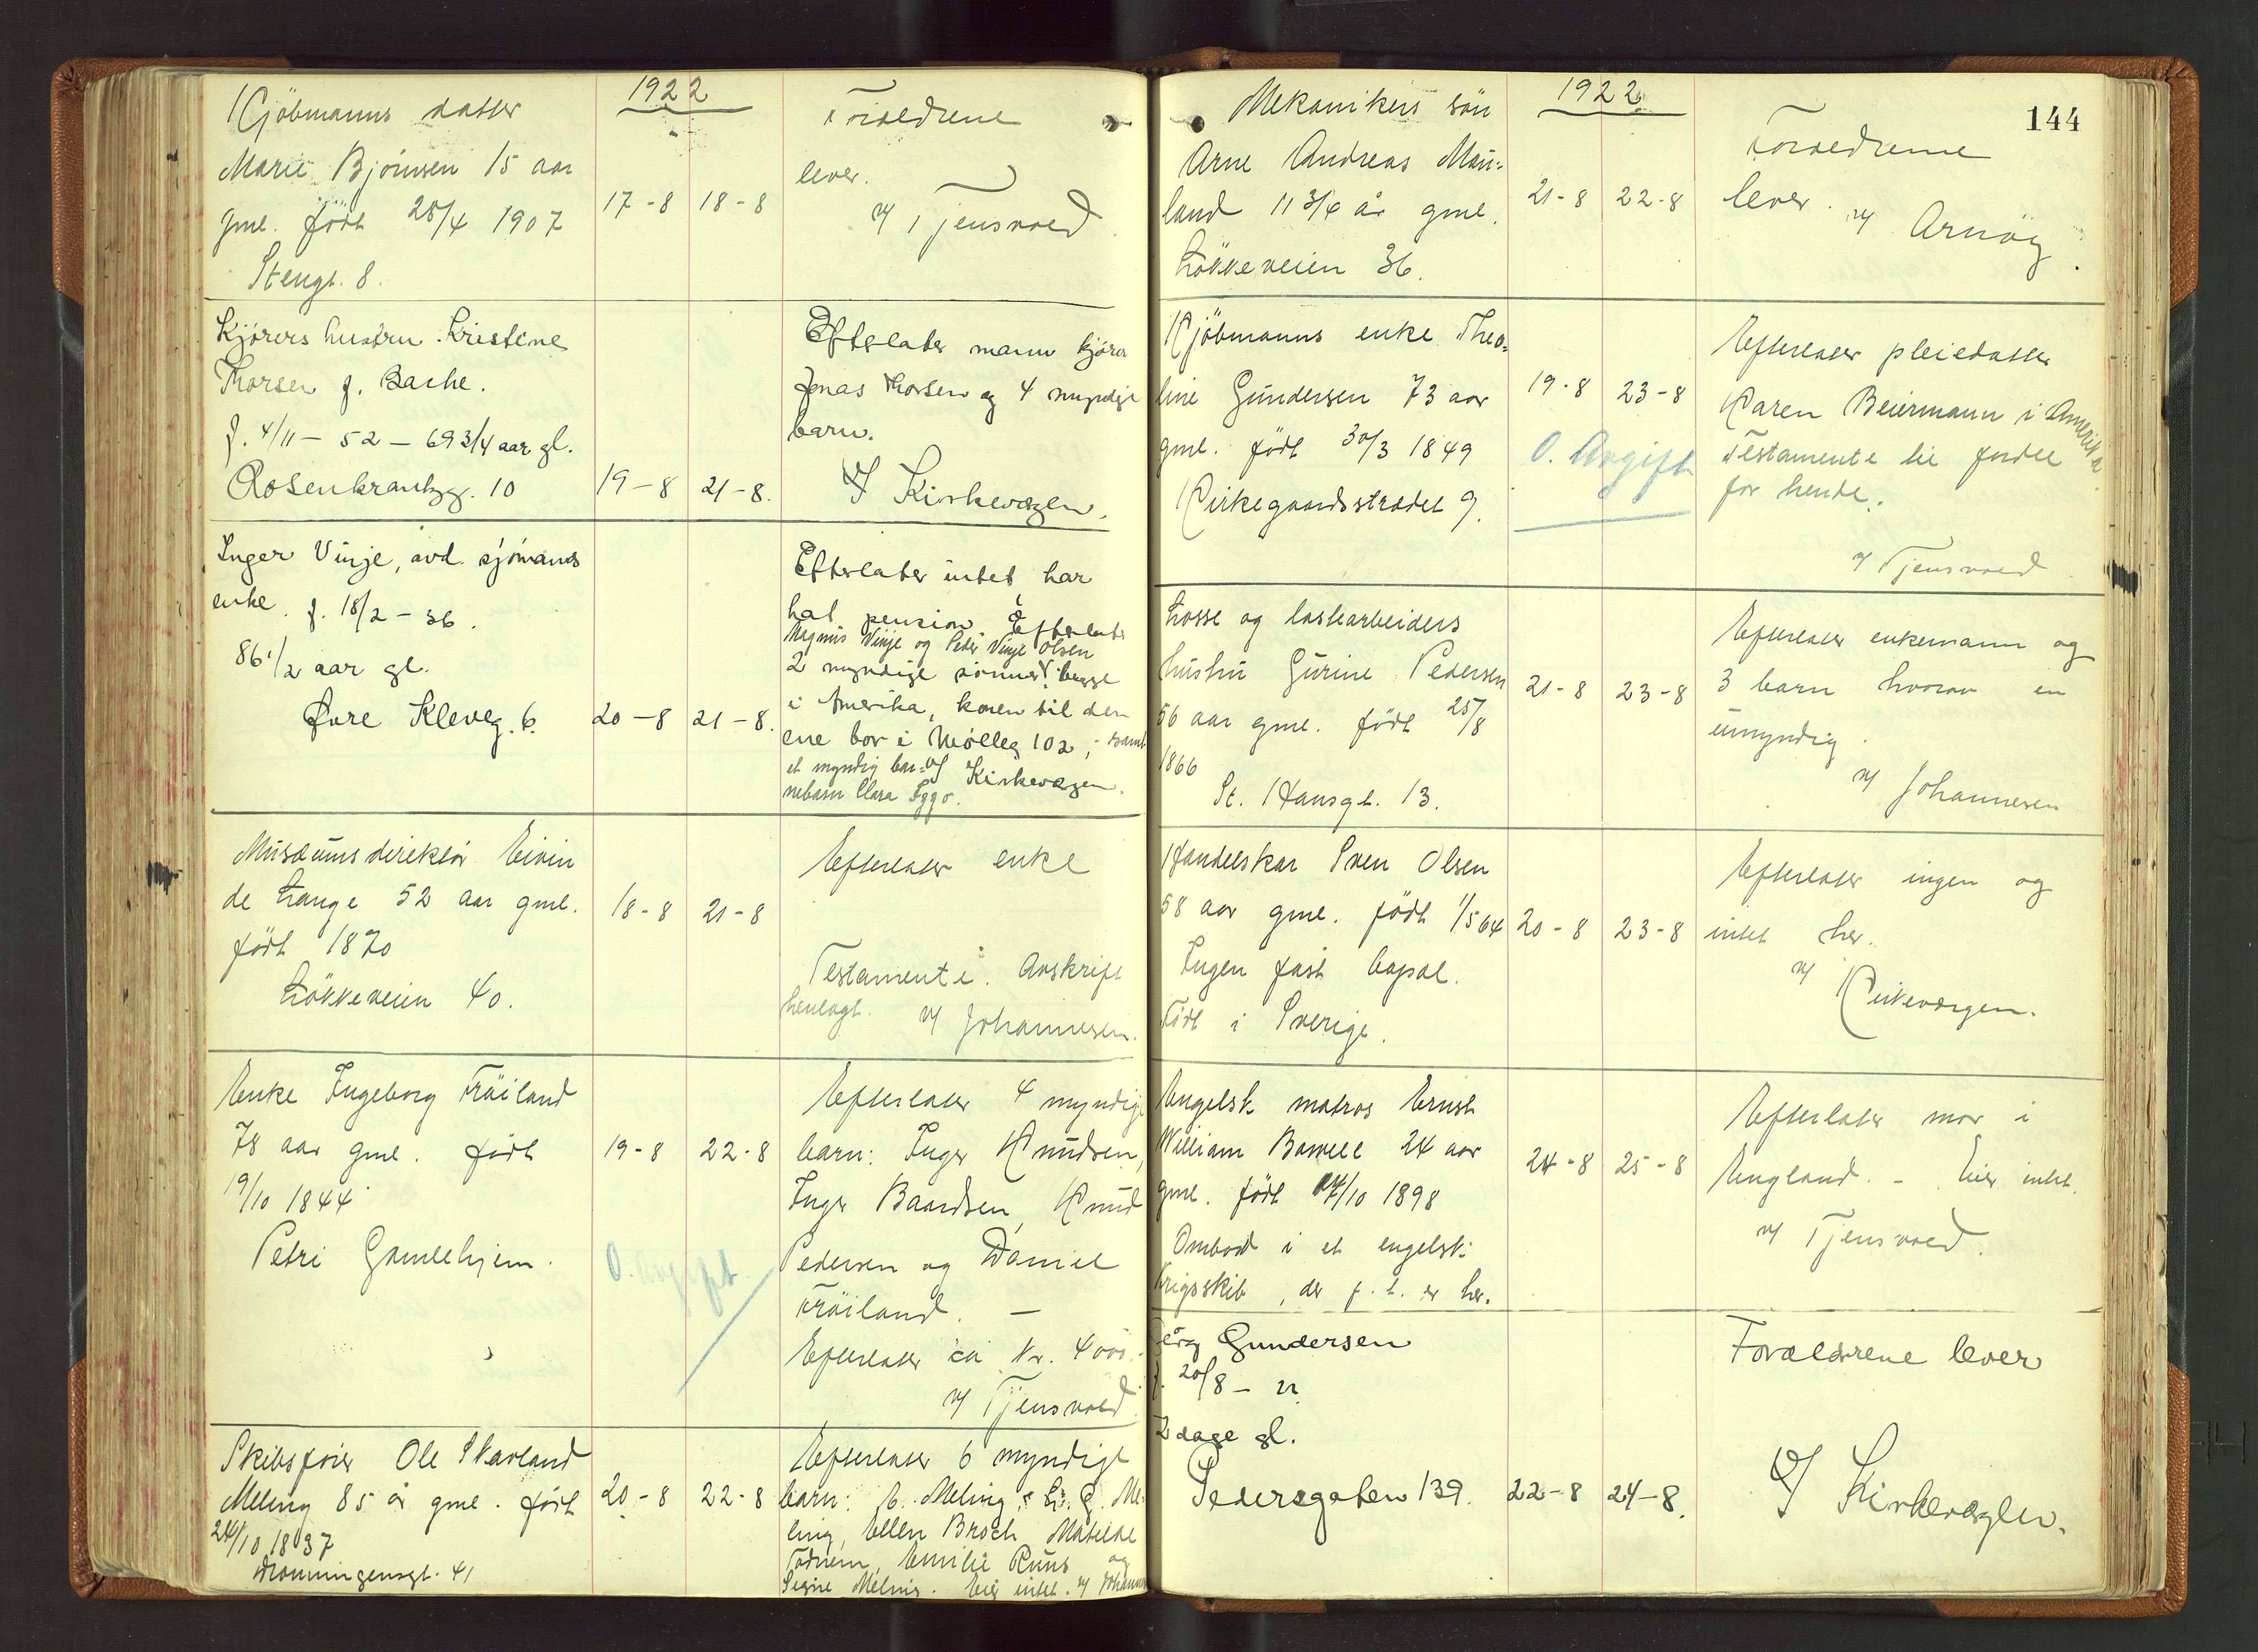 1922
Kjöbmanns datter
Marie Bjömsen 15 aar
gml. född 28/4 1907
Stengt. 8.
17-8 18-8
Foraeldrene
lever.
v/ Tjensvold
Kjörers hustru Kristine
Thorsen f. Bache.
f. 4/11 - 52 - 69 3/4 aar gl.
Rosenkrantzg. 10
19-8 21-8.
Efterlater mann kjörer
Jonas Thorsen og 4 myndige
barn.
v/ Kirkevægen.
Inger Vinje, avd. sjömands
enke. f. 18/2 - 36.
86 1/2 aar gl.
Øvre Kleveg. 6.
20-8 21-8.
Efterlater intet, har
hat pension. Efterlater
Magnus Vinje og Peder Vinje Olsen
2 myndige sønner, begge
i Amerika, konen til den
ene bor i Mølleg 102, samt
et myndig bar- v/ Kirkevægen.
nebarn Clara Iggo.
Musæumsdirektör Eivin
de Lange 52 aar gml.
född 1870
Lökkeveien 40.
18-8 21-8
Efterlater enke
Testamente. Avskrift
henlagt. v/ Johannesen.
Enke Ingeborg Fröiland
78 aar gml. född
19/10 1844
Petri Gamlehjem.
19-8 22-8
0. avgift
Efterlater 4 myndige
barn: Inger Knudsen,
Inger Baardsen, Knud
Pedersen og Daniel
Fröiland. -
Efterlater ca Kr. 4000.-
v/ Tjensvold
Skibsförer Ole Skavland
Meling 85 år gml. född
24/10 1837
Dronningensgt. 41
20-8 22-8
Efterlater 6 myndige
barn: E. Meling, L. G. Me-
ling, Ellen Broch, Matilde
Tödnem, Emilie Ruus og
Signe Meling. Eier intet. v/ Johannesen
144
1922
Mekanikers sön
Arne Andreas Mau-
land 11 3/4 år gml.
Lökkeveien 36.
21-8 22-8
Foraeldrene
lever.
v/ Arnöy.
Kjöbmanns enke Theo-
line Gundersen 73 aar
gml. född 30/3 1849
Kirkegaardsstrædet 9.
19-8 23-8
0. Avgift
Efterlater pleiedatter
Karen Beiermann i Amerika
Testamente til fordel
for hende.
v/ Tjensvold
Losse og lastearbeiders
hustru Gurine Pedersen
56 aar gml. född 25/8
1866
St. Hansgt. 13.
21-8 23-8
Efterlater enkemann og
3 barn hvorav en
umyndig.
v/ Johannesen
Handelskar Sven Olsen
58 aar gml. född 1/5 64
Ingen fast bopæl.
Född i Sverige.
20-8 23-8
Efterlater ingen og
intet her.
v/ Kirkeværgen.
Engelsk matros Ernst
William Bowell 24 aar
gml. född 14/10 1898
Ombord i et engelsk
krigsskib, der p. t. er her.
24-8 25-8
Efterlater mor i
England. - Eier intet.
v/ Tjensvold.
Georg Gundersen
f. 20/8 - 22
2 dage gl.
Pedersgaten 139.
22-8 24-8.
Forældrene lever
v/ Kirkevægen.